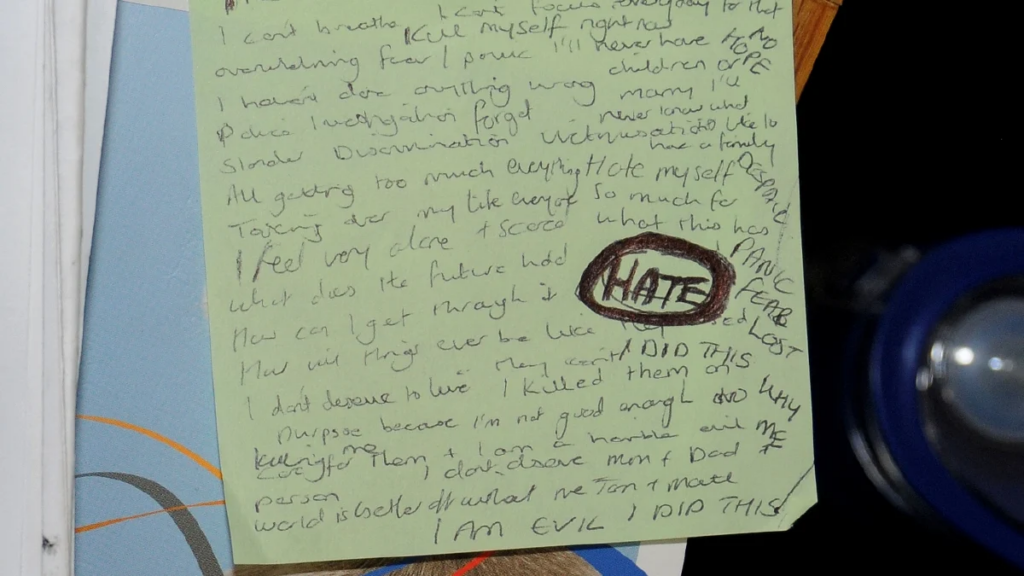 I can't breathe I can't focus everyday to that
Kill myself right now
overwhelming fear / panic I'll never have NO HOPE
I haven't done anything wrong children or
Police investigation forget marry I'll
Slander Discrimination victimisation never know what
like to
All getting too much everything Hate myself have a family
DESPAIR
Taking over my life everyone so much for
I feel very alone + scared what this has
what does the future hold HATE PANIC
How can I get through it FEAR
How will things ever be like LOST
I DID THIS
I don't deserve to live They can't
I killed them on
purpose because I'm not good enough AND WHY
killing me
caring for them + I am a horrible evil ME
person I don't deserve mum + Dad +
world is better off without me Tan + mate
I AM EVIL I DID THIS